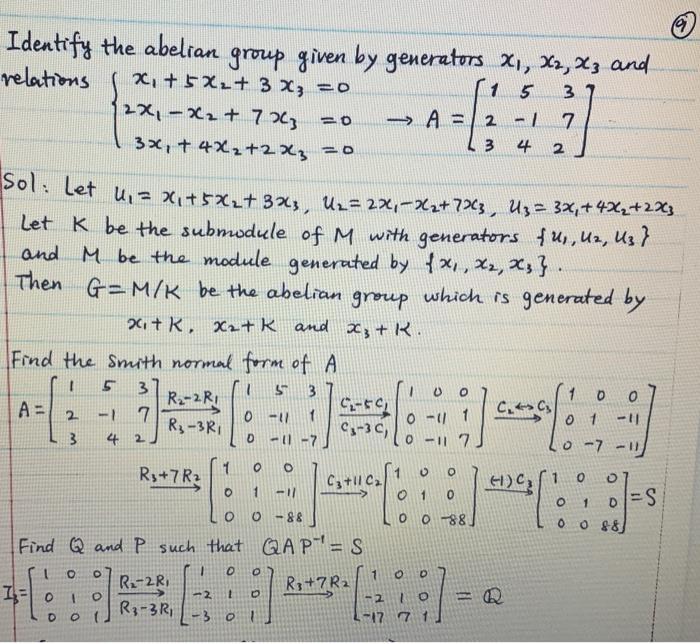 ⑨
Identify the abelian group given by generators x₁, x₂, x₃ and
relations { x₁ + 5x₂ + 3x₃ = 0
2x₁ - x₂ + 7x₃ = 0 → A = [1 5 3; 2 -1 7; 3 4 2]
3x₁ + 4x₂ + 2x₃ = 0
Sol: Let u₁ = x₁+5x₂+3x₃, u₂ = 2x₁-x₂+7x₃, u₃ = 3x₁+4x₂+2x₃
Let K be the submodule of M with generators {u₁, u₂, u₃}
and M be the module generated by {x₁, x₂, x₃}.
Then G = M/K be the abelian group which is generated by
x₁+K, x₂+K and x₃+K.
Find the Smith normal form of A
A = [1 5 3; 2 -1 7; 3 4 2] R₂-2R₁ R₃-3R₁ → [1 5 3; 0 -11 1; 0 -11 -7] C₂-5C₁ C₃-3C₁ → [1 0 0; 0 -11 1; 0 -11 7] C₂↔C₃ → [1 0 0; 0 1 -11; 0 -7 -11]
R₃+7R₂ → [1 0 0; 0 1 -11; 0 0 -88] C₃+11C₂ → [1 0 0; 0 1 0; 0 0 -88] (-1)C₃ → [1 0 0; 0 1 0; 0 0 88] = S
Find Q and P such that QAP⁻¹ = S
I₃ = [1 0 0; 0 1 0; 0 0 1] R₂-2R₁ R₃-3R₁ → [1 0 0; -2 1 0; -3 0 1] R₃+7R₂ → [1 0 0; -2 1 0; -17 7 1] = Q